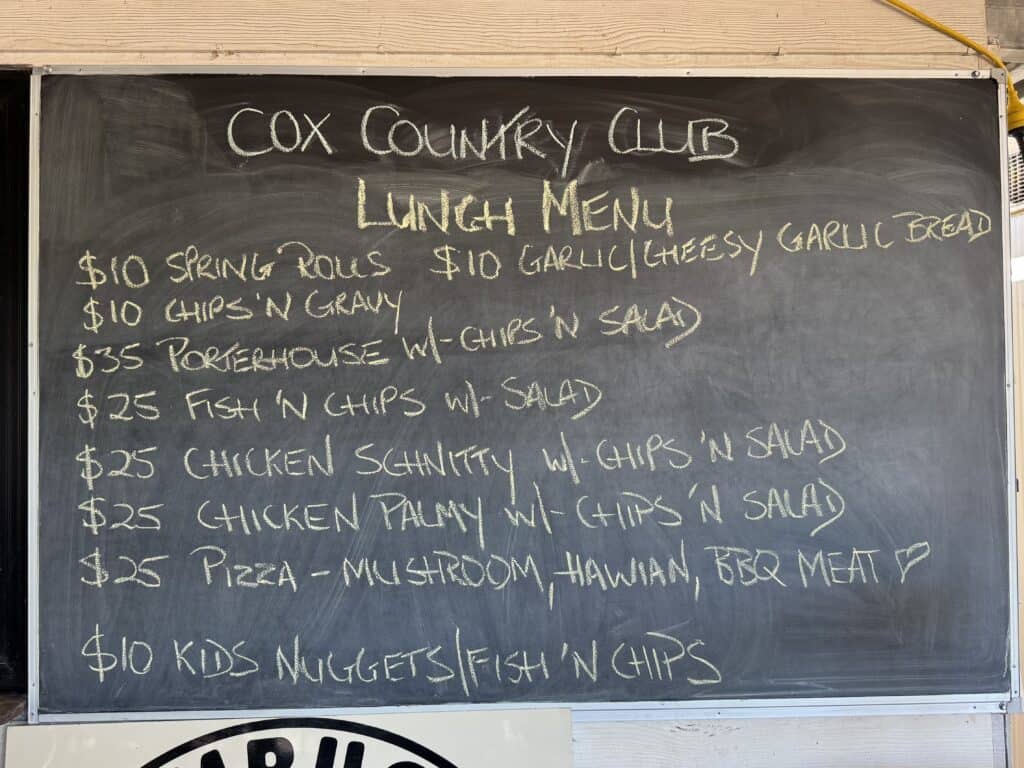 COX COUNTRY CLUB
LUNCH MENU
$10 SPRING ROLLS $10 GARLIC/CHEESY GARLIC BREAD
$10 CHIPS 'N GRAVY
$35 PORTERHOUSE W/- CHIPS 'N SALAD
$25 FISH 'N CHIPS W/- SALAD
$25 CHICKEN SCHNITTY W/- CHIPS 'N SALAD
$25 CHICKEN PALMY W/- CHIPS 'N SALAD
$25 PIZZA - MUSHROOM, HAWIAN, BBQ MEAT ♡
$10 KIDS NUGGETS/FISH 'N CHIPS